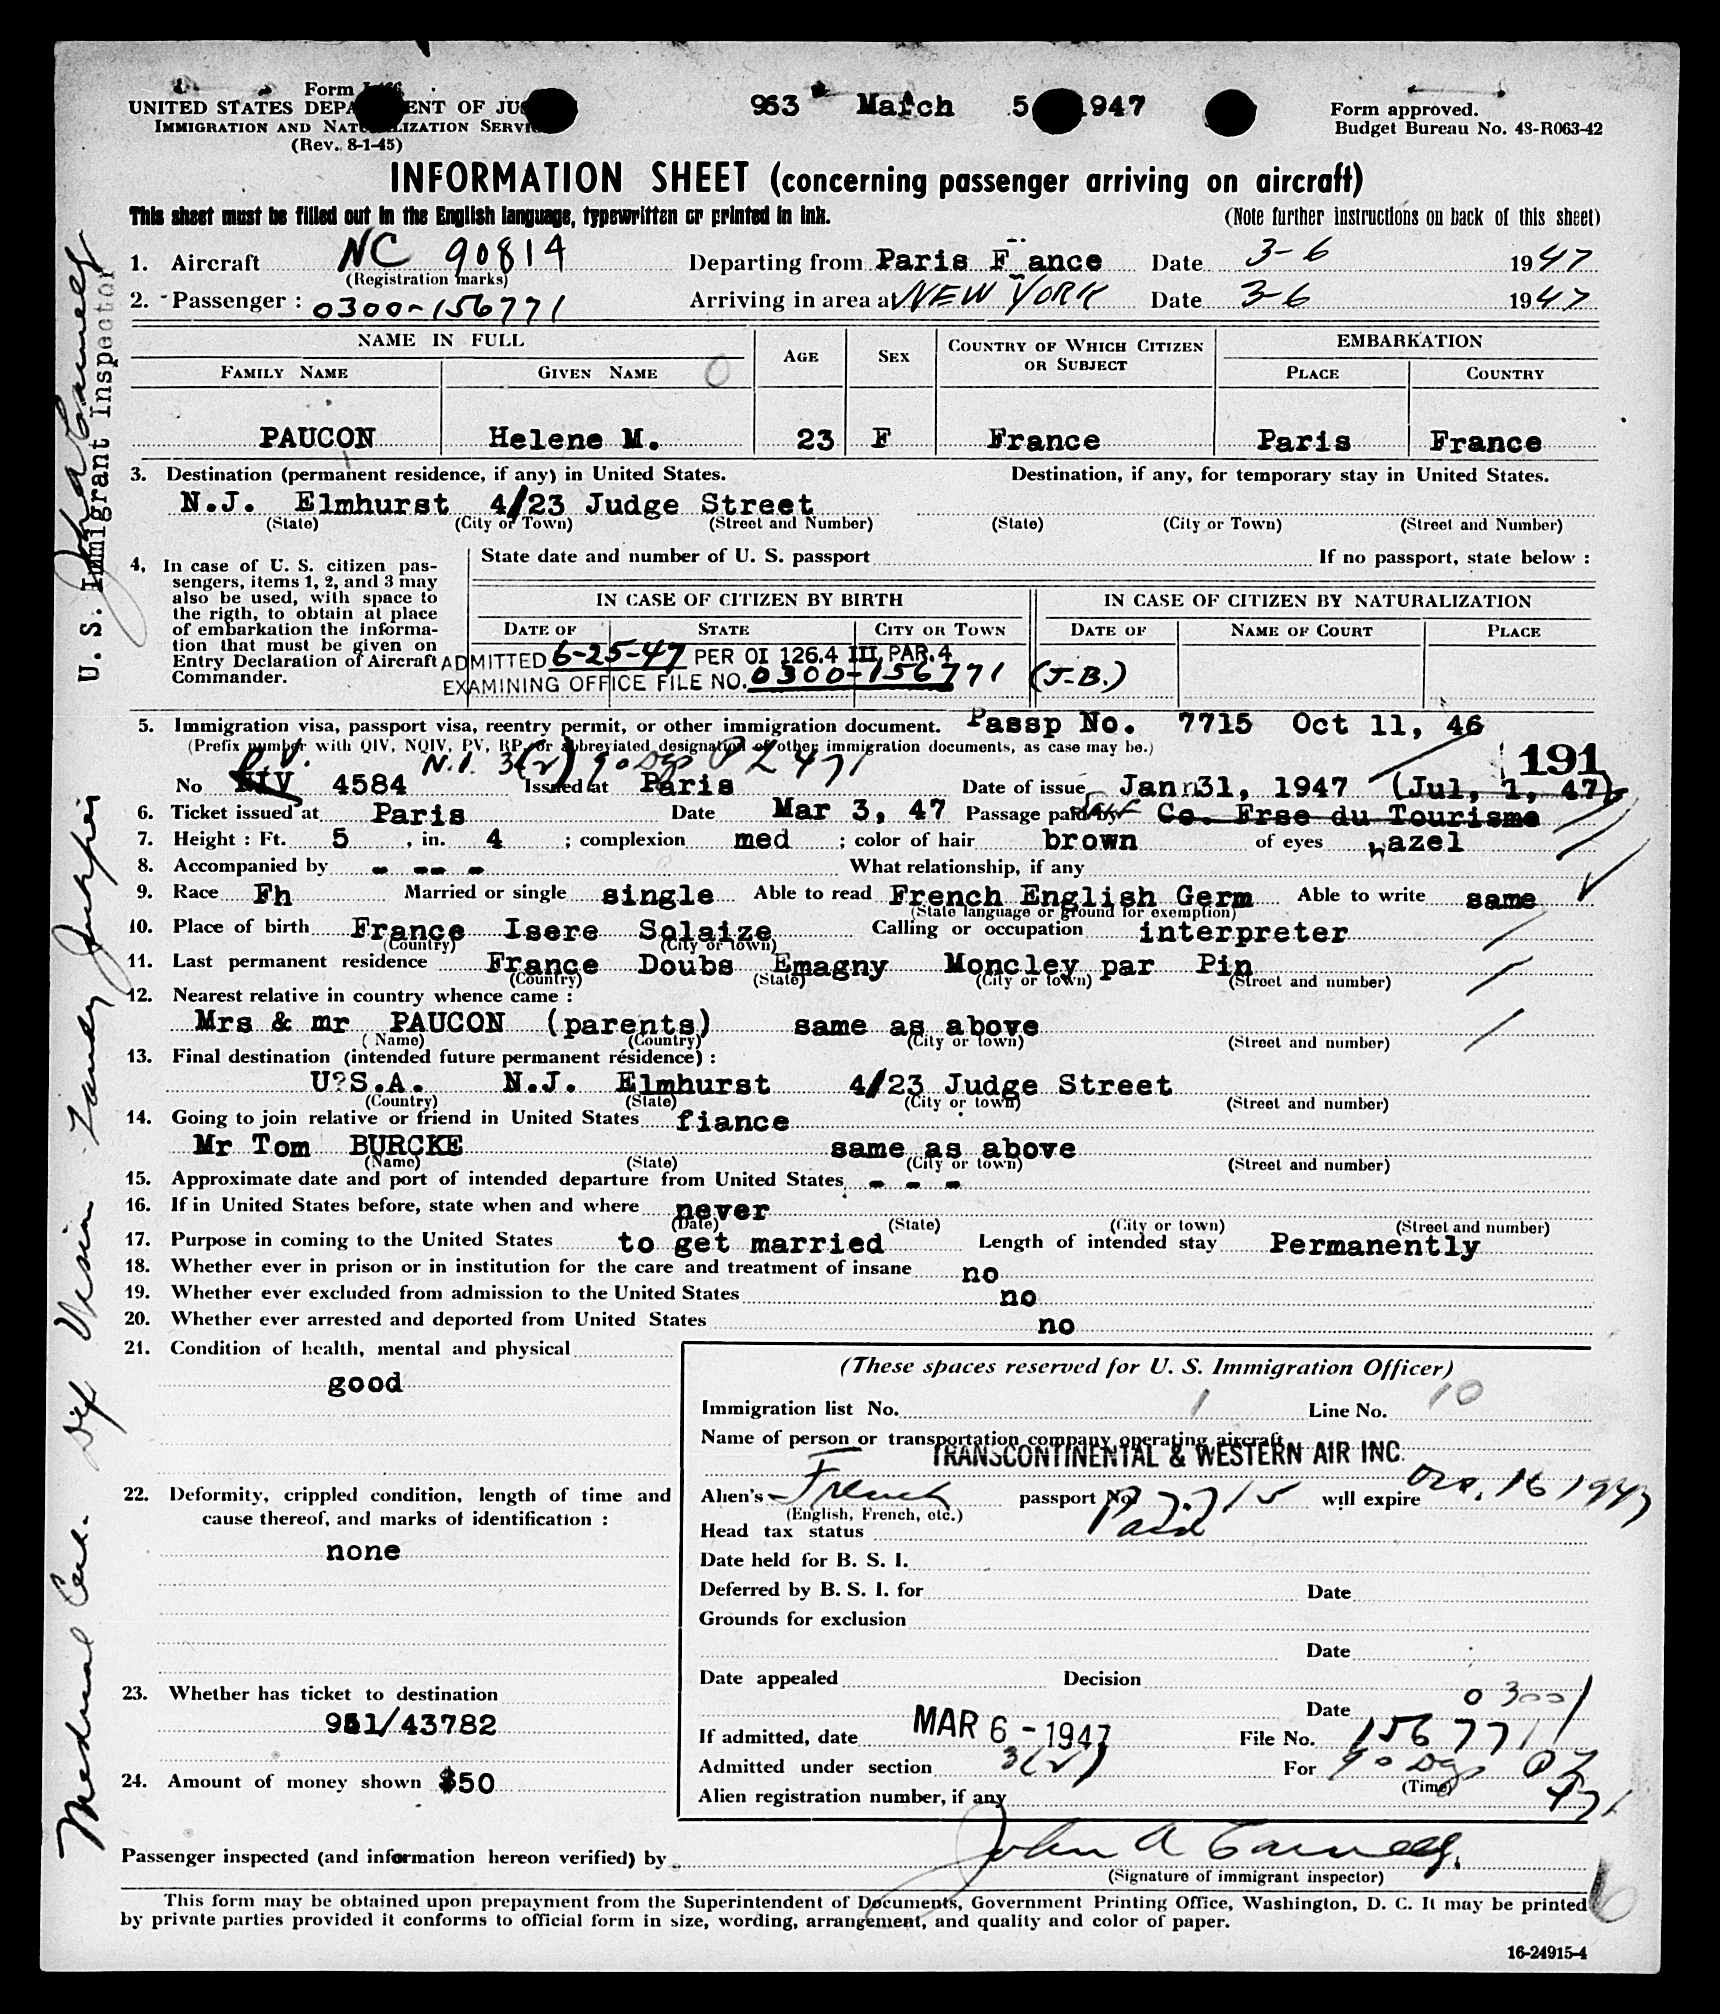 Form I-466
UNITED STATES DEPARTMENT OF JUSTICE
IMMIGRATION AND NATURALIZATION SERVICE
(Rev. 8-1-45)
963 March 5 1947
Form approved.
Budget Bureau No. 43-R063-42
INFORMATION SHEET (concerning passenger arriving on aircraft)
This sheet must be filled out in the English language, typewritten or printed in ink.
(Note further instructions on back of this sheet)
1. Aircraft NC 90814 Departing from Paris F ance Date 3-6 1947
(Registration marks)
2. Passenger : 0300-156771 Arriving in area at NEW YORK Date 3-6 1947
NAME IN FULL AGE SEX COUNTRY OF WHICH CITIZEN OR SUBJECT EMBARKATION
FAMILY NAME GIVEN NAME 0 PLACE COUNTRY
PAUCON Helene M. 23 F France Paris France
3. Destination (permanent residence, if any) in United States. Destination, if any, for temporary stay in United States.
N.J. Elmhurst 4/23 Judge Street
(State) (City or Town) (Street and Number) (State) (City or Town) (Street and Number)
4, In case of U. S. citizen pas-
sengers, items 1, 2, and 3 may
also be used, with space to
the rigth, to obtain at place
of embarkation the informa-
tion that must be given on
Entry Declaration of Aircraft
Commander.
State date and number of U. S. passport If no passport, state below :
IN CASE OF CITIZEN BY BIRTH IN CASE OF CITIZEN BY NATURALIZATION
DATE OF STATE CITY OR TOWN DATE OF NAME OF COURT PLACE
ADMITTED 6-25-47 PER OI 126.4 III, PAR. 4
EXAMINING OFFICE FILE NO. 0300-156771 (J.B.)
5. Immigration visa, passport visa, reentry permit, or other immigration document. Passp No. 7715 Oct 11, 46
(Prefix number with QIV, NQIV, PV, RP, or abbreviated designation of other immigration documents, as case may be.)
P.V. N.I. 3(2) 90 Dys P Z 471 191
No NIV 4584 Issued at Paris Date of issue Jann31, 1947 (Jul, 1, 47)
6. Ticket issued at Paris Date Mar 3, 47 Passage paid by Self Co. Frse du Tourisme
7. Height : Ft. 5 , in. 4 ; complexion med ; color of hair brown of eyes hazel
8. Accompanied by - -- - What relationship, if any
9. Race Fh Married or single single Able to read French English Germ Able to write same
(State language or ground for exemption)
10. Place of birth France Isere Solaize Calling or occupation interpreter
(Country) (City or town)
11. Last permanent residence France Doubs Emagny Moncley par Pin
(Country) (State) (City or town) (Street and number)
12. Nearest relative in country whence came :
Mrs & mr PAUCON (parents) same as above
(Name) (Country) (City or town) (Street and number)
13. Final destination (intended future permanent résidence) :
U?S.A. N.J. Elmhurst 4/23 Judge Street
(Country) (State) (City or town) (Street and number)
14. Going to join relative or friend in United States fiance
Mr Tom BURCKE same as above
(Name) (State) (City or town) (Street and number)
15. Approximate date and port of intended departure from United States - - -
16. If in United States before, state when and where never
(Date) (State) (City or town) (Street and number)
17. Purpose in coming to the United States to get married Length of intended stay Permanently
18. Whether ever in prison or in institution for the care and treatment of insane no
19. Whether ever excluded from admission to the United States no
20. Whether ever arrested and deported from United States no
21. Condition of health, mental and physical
good
22. Deformity, crippled condition, length of time and
cause thereof, and marks of identification :
none
23. Whether has ticket to destination
951/43782
24. Amount of money shown $50
(These spaces reserved for U. S. Immigration Officer)
Immigration list No. 1 Line No. 10
Name of person or transportation company operating aircraft
TRANSCONTINENTAL & WESTERN AIR INC.
Alien's French passport No. 7715 will expire Oct. 16 1947
(English, French, etc.)
Head tax status Paid
Date held for B. S. I.
Deferred by B. S. I. for Date
Grounds for exclusion
Date
Date appealed Decision
Date 0300/
If admitted, date MAR 6 - 1947 File No. 156771
Admitted under section 3(2) For 90 Dys P Z
(Time) 471
Alien registration number, if any
Passenger inspected (and information hereon verified) by John A
(Signature of immigrant inspector)
This form may be obtained upon prepayment from the Superintendent of Documents, Government Printing Office, Washington, D. C. It may be printed
by private parties provided it conforms to official form in size, wording, arrangement, and quality and color of paper.
16-24915-4
U. S. Immigrant Inspector
John A
Medical